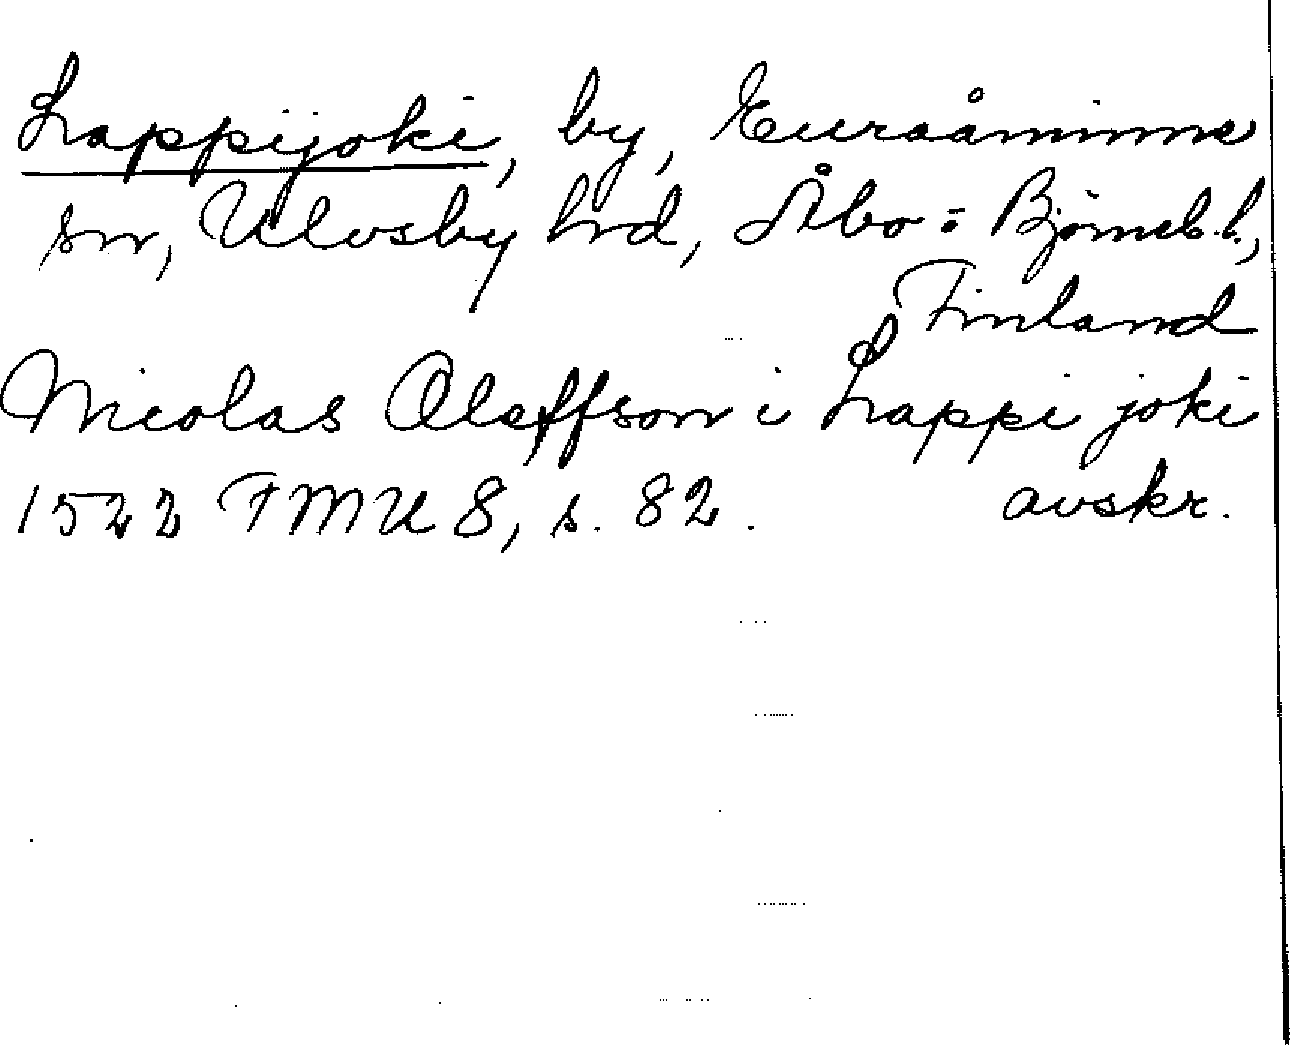 Lappijoki, by, Euraåminne
sn, Ulvsby hd, Åbo-Björneb.l.,
Finland
Nicolas Oleffson i Lappi joki
1522 FMU 8, s. 82. avskr.